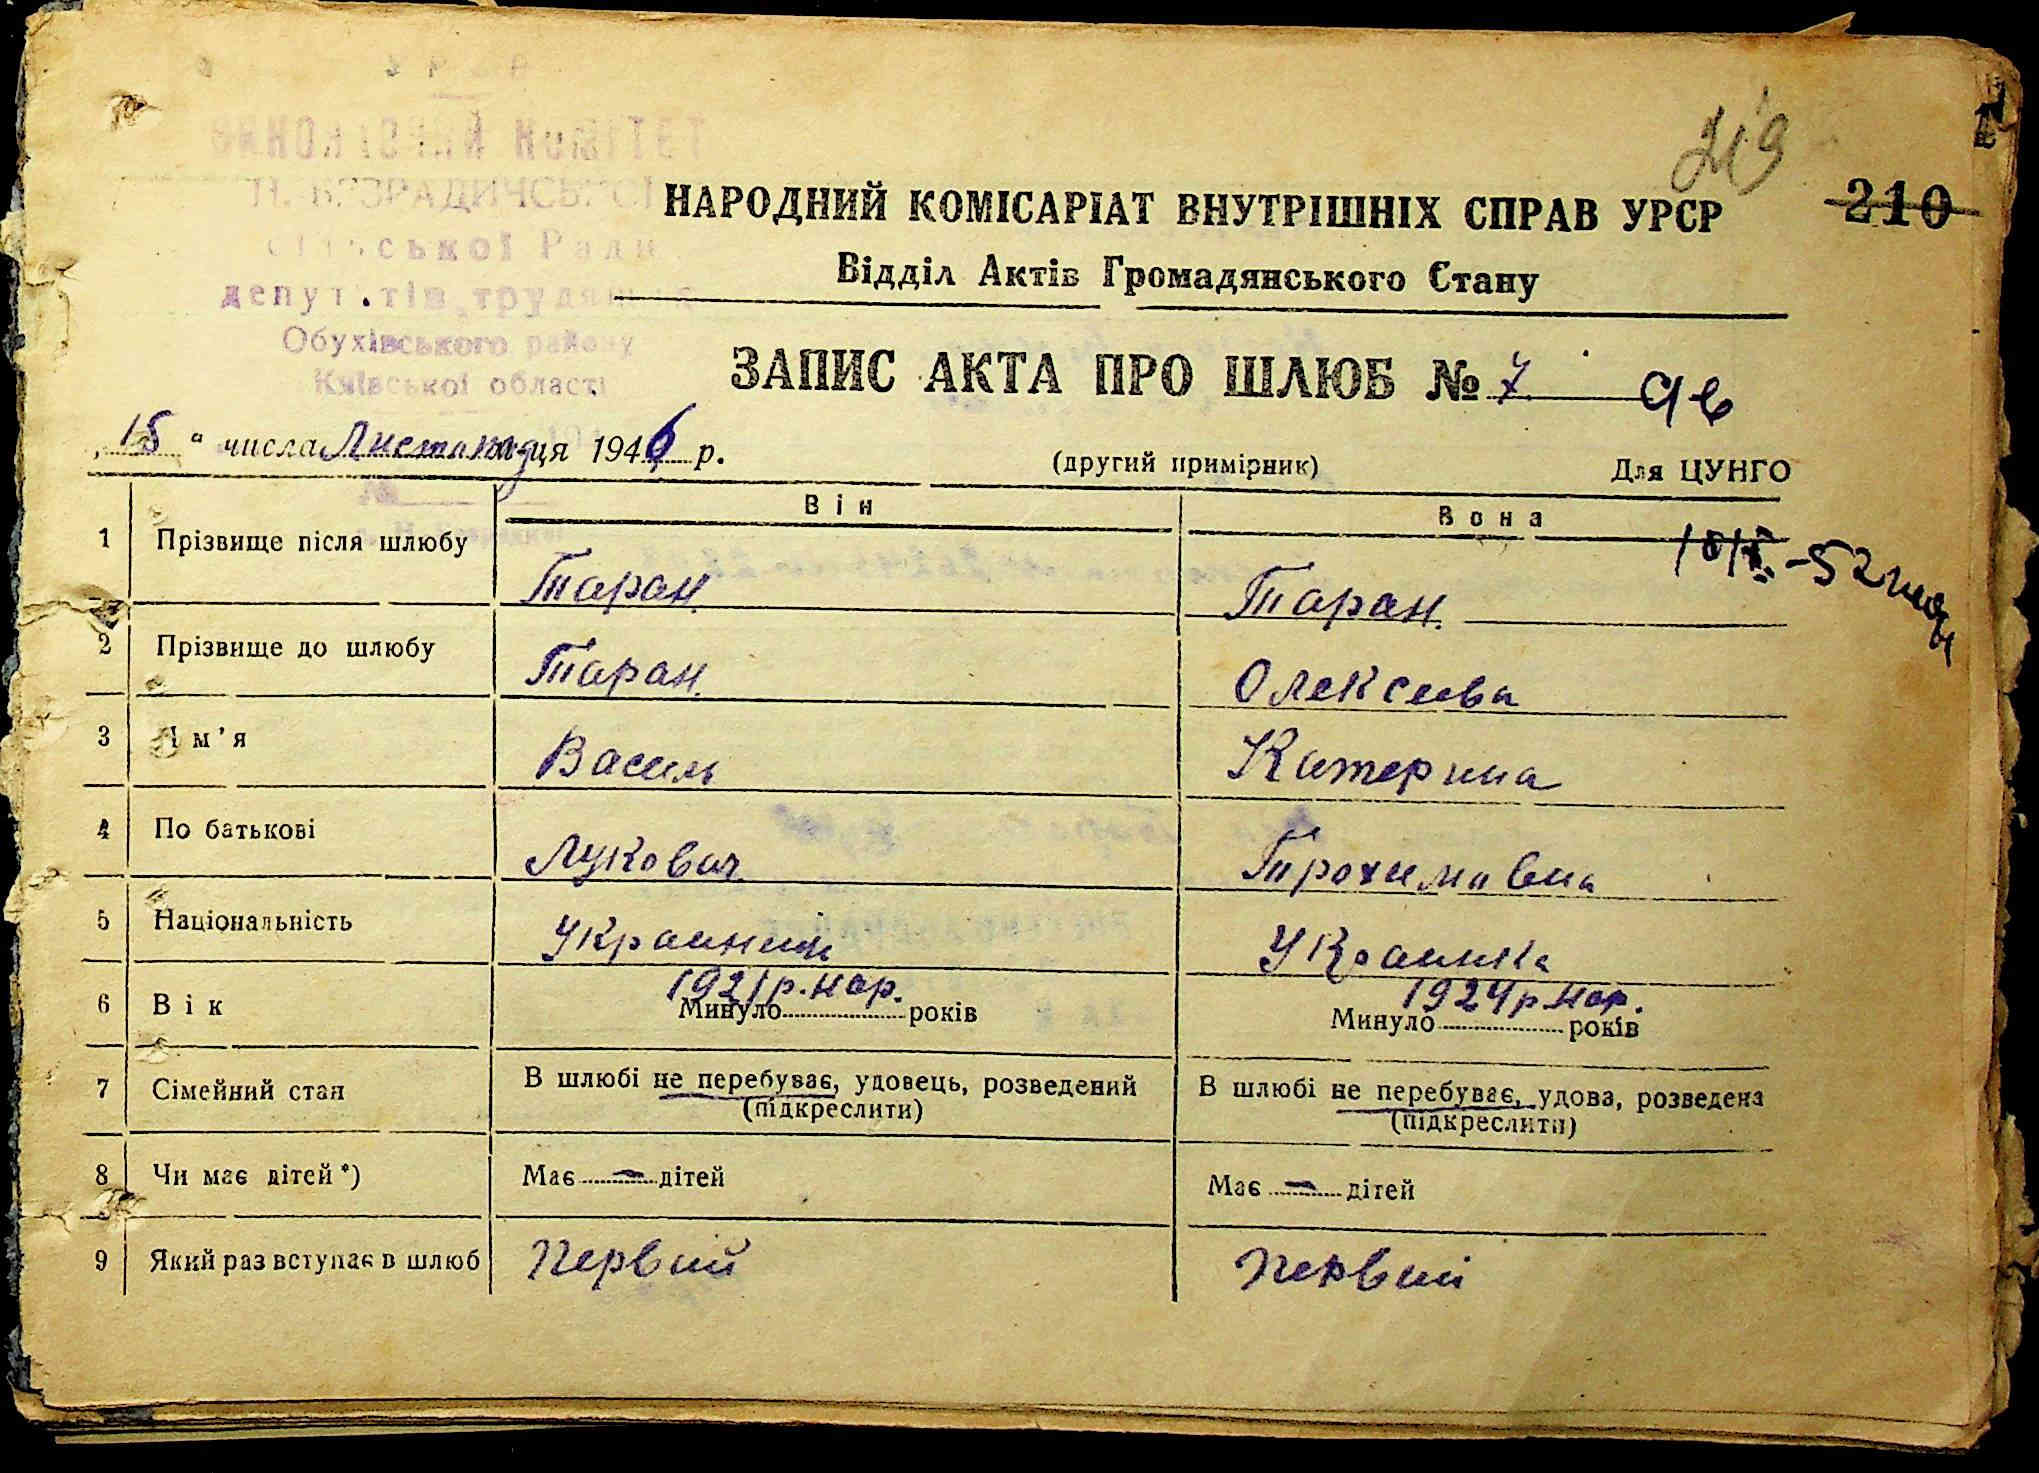 ВИКОНАВЧИЙ КОМІТЕТ
Н. БЕЗРАДИЧСЬКОЇ
сільської Ради
депутатів трудящих
Обухівського району
Київської області
219
210
НАРОДНИЙ КОМІСАРІАТ ВНУТРІШНІХ СПРАВ УРСР
Відділ Актів Громадянського Стану
ЗАПИС АКТА ПРО ШЛЮБ № 7
„15" числа Листопада м-ця 1946 р.
(другий примірник)
Для ЦУНГО
Він
Вона
1 Прізвище після шлюбу Таран Таран
2 Прізвище до шлюбу Таран Олексеева
3 Ім'я Василь Катерина
4 По батькові Лукович Трохимивна
5 Національність Украинец Украинка
6 Вік 1921 р. нар. 1924 р. нар.
Минуло років Минуло років
7 Сімейний стан В шлюбі не перебуває, удовець, розведений В шлюбі не перебуває, удова, розведена
(підкреслити) (підкреслити)
8 Чи має дітей *) Має — дітей Має — дітей
9 Який раз вступає в шлюб Первий Первий